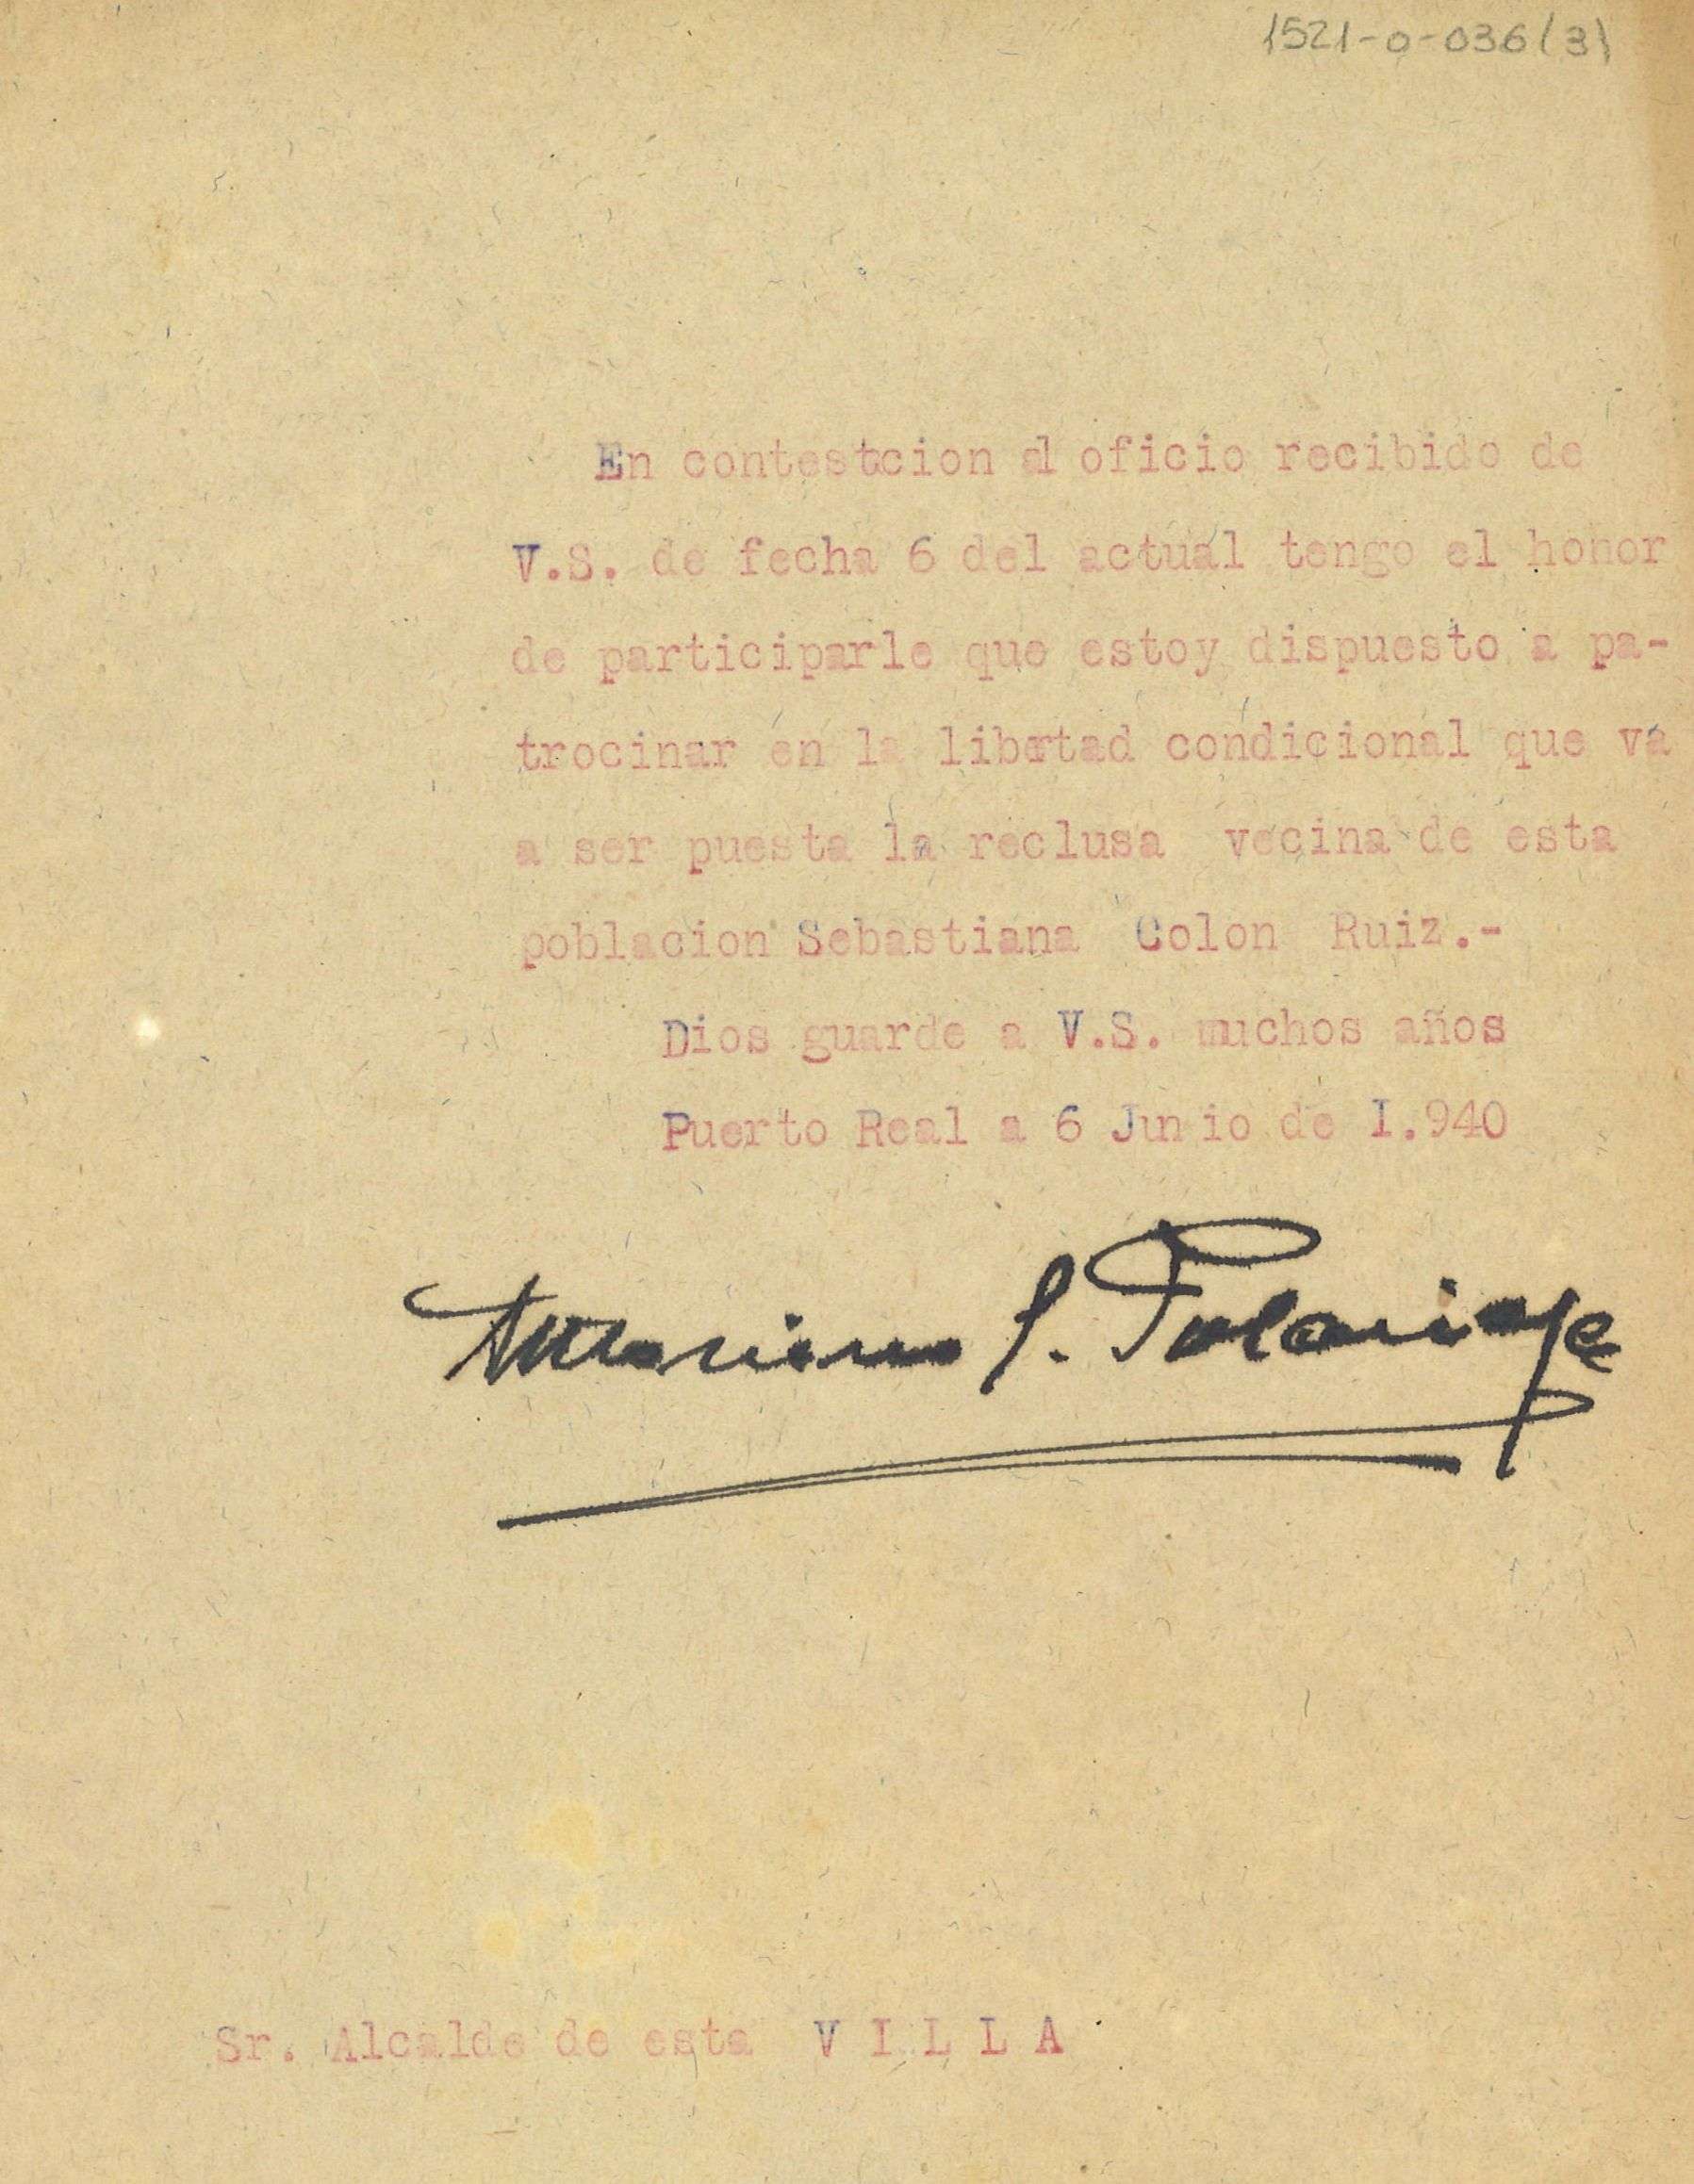 1521-0-036(3)
En contestcion al oficio recibido de
V.S. de fecha 6 del actual tengo el honor
de participarle que estoy dispuesto a pa-
trocinar en la libertad condicional que va
a ser puesta la reclusa vecina de esta
poblacion Sebastiana Colon Ruiz.-
Dios guarde a V.S. muchos años
Puerto Real a 6 Junio de I.940
Sr. Alcalde de esta V I L L A